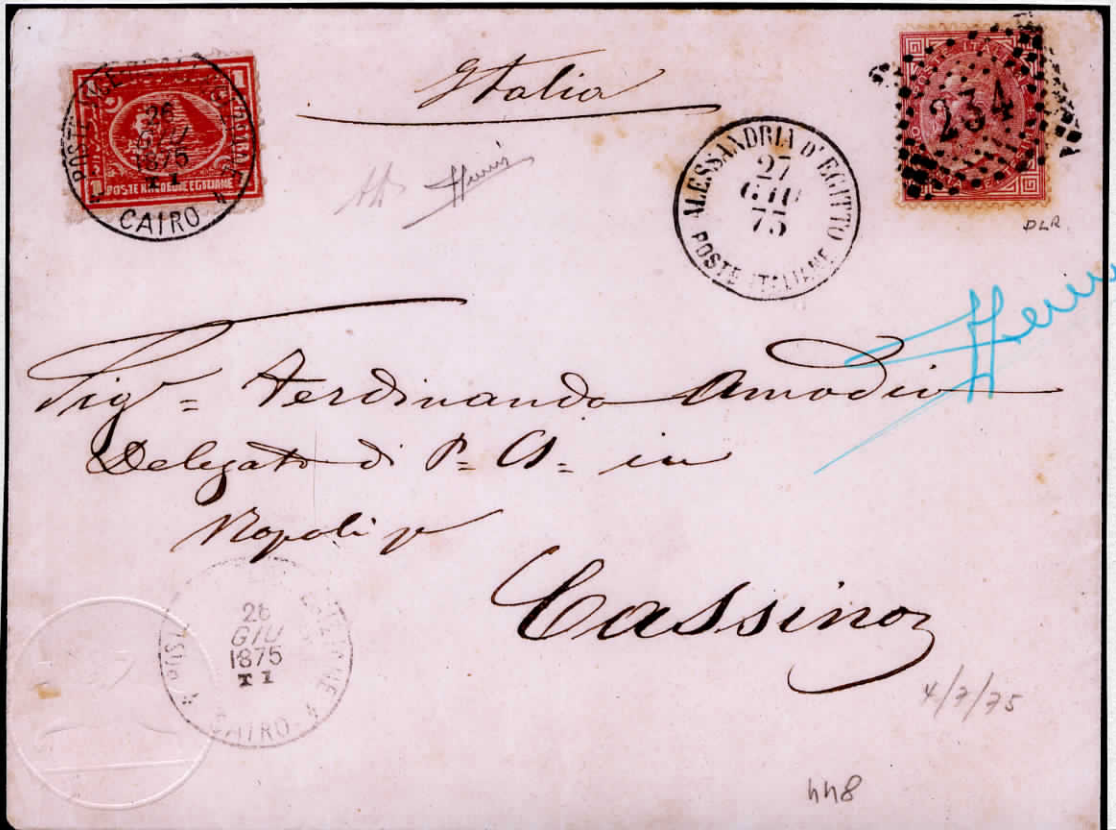 Italia
POSTE
CAIRO
26
GIU
1875
T I
POSTE KHEDEUIE EGIZIANE
1
1
234
ALESSANDRIA D'EGITTO
27
GIU
75
POSTE ITALIANE
DLR
Sigr= Ferdinando Amodio
Delegato di P= S= in
Napoli pr
Cassino
26
GIU
1875
T I
CAIRO
4/7/75
448